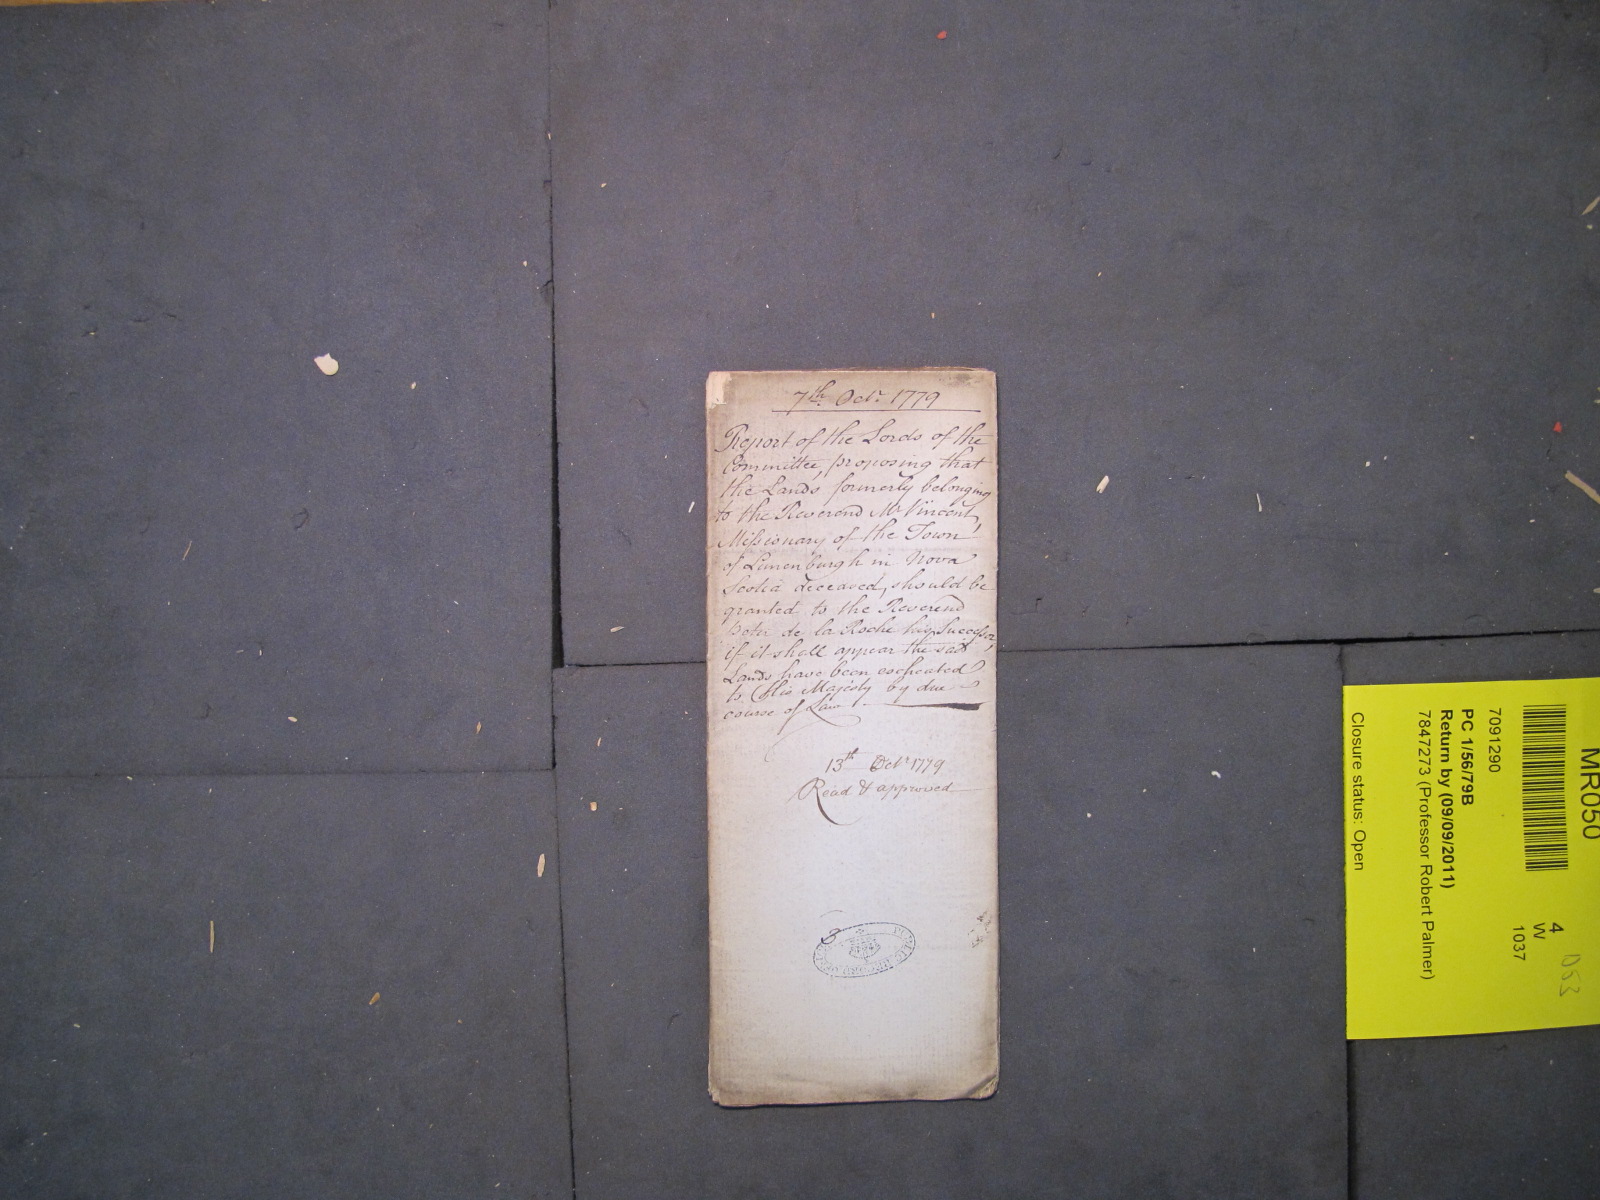 7th. Octr. 1779
Report of the Lords of the
Committee, proposing that
the Lands formerly belonging
to the Reverend Mr. Vincent,
Missionary of the Town
of Lunenburgh in Nova
Scotia deceased, should be
granted to the Reverend
Peter de la Roche his Successor,
if it shall appear the said
Lands have been escheated
to His Majesty by due
course of Law
13th Octr. 1779
Read & approved
3
PUBLIC RECORD OFFICE
MR050
4
W
1037
7091290
PC 1/56/79B
Return by (09/09/2011)
7847273 (Professor Robert Palmer)
Closure status: Open